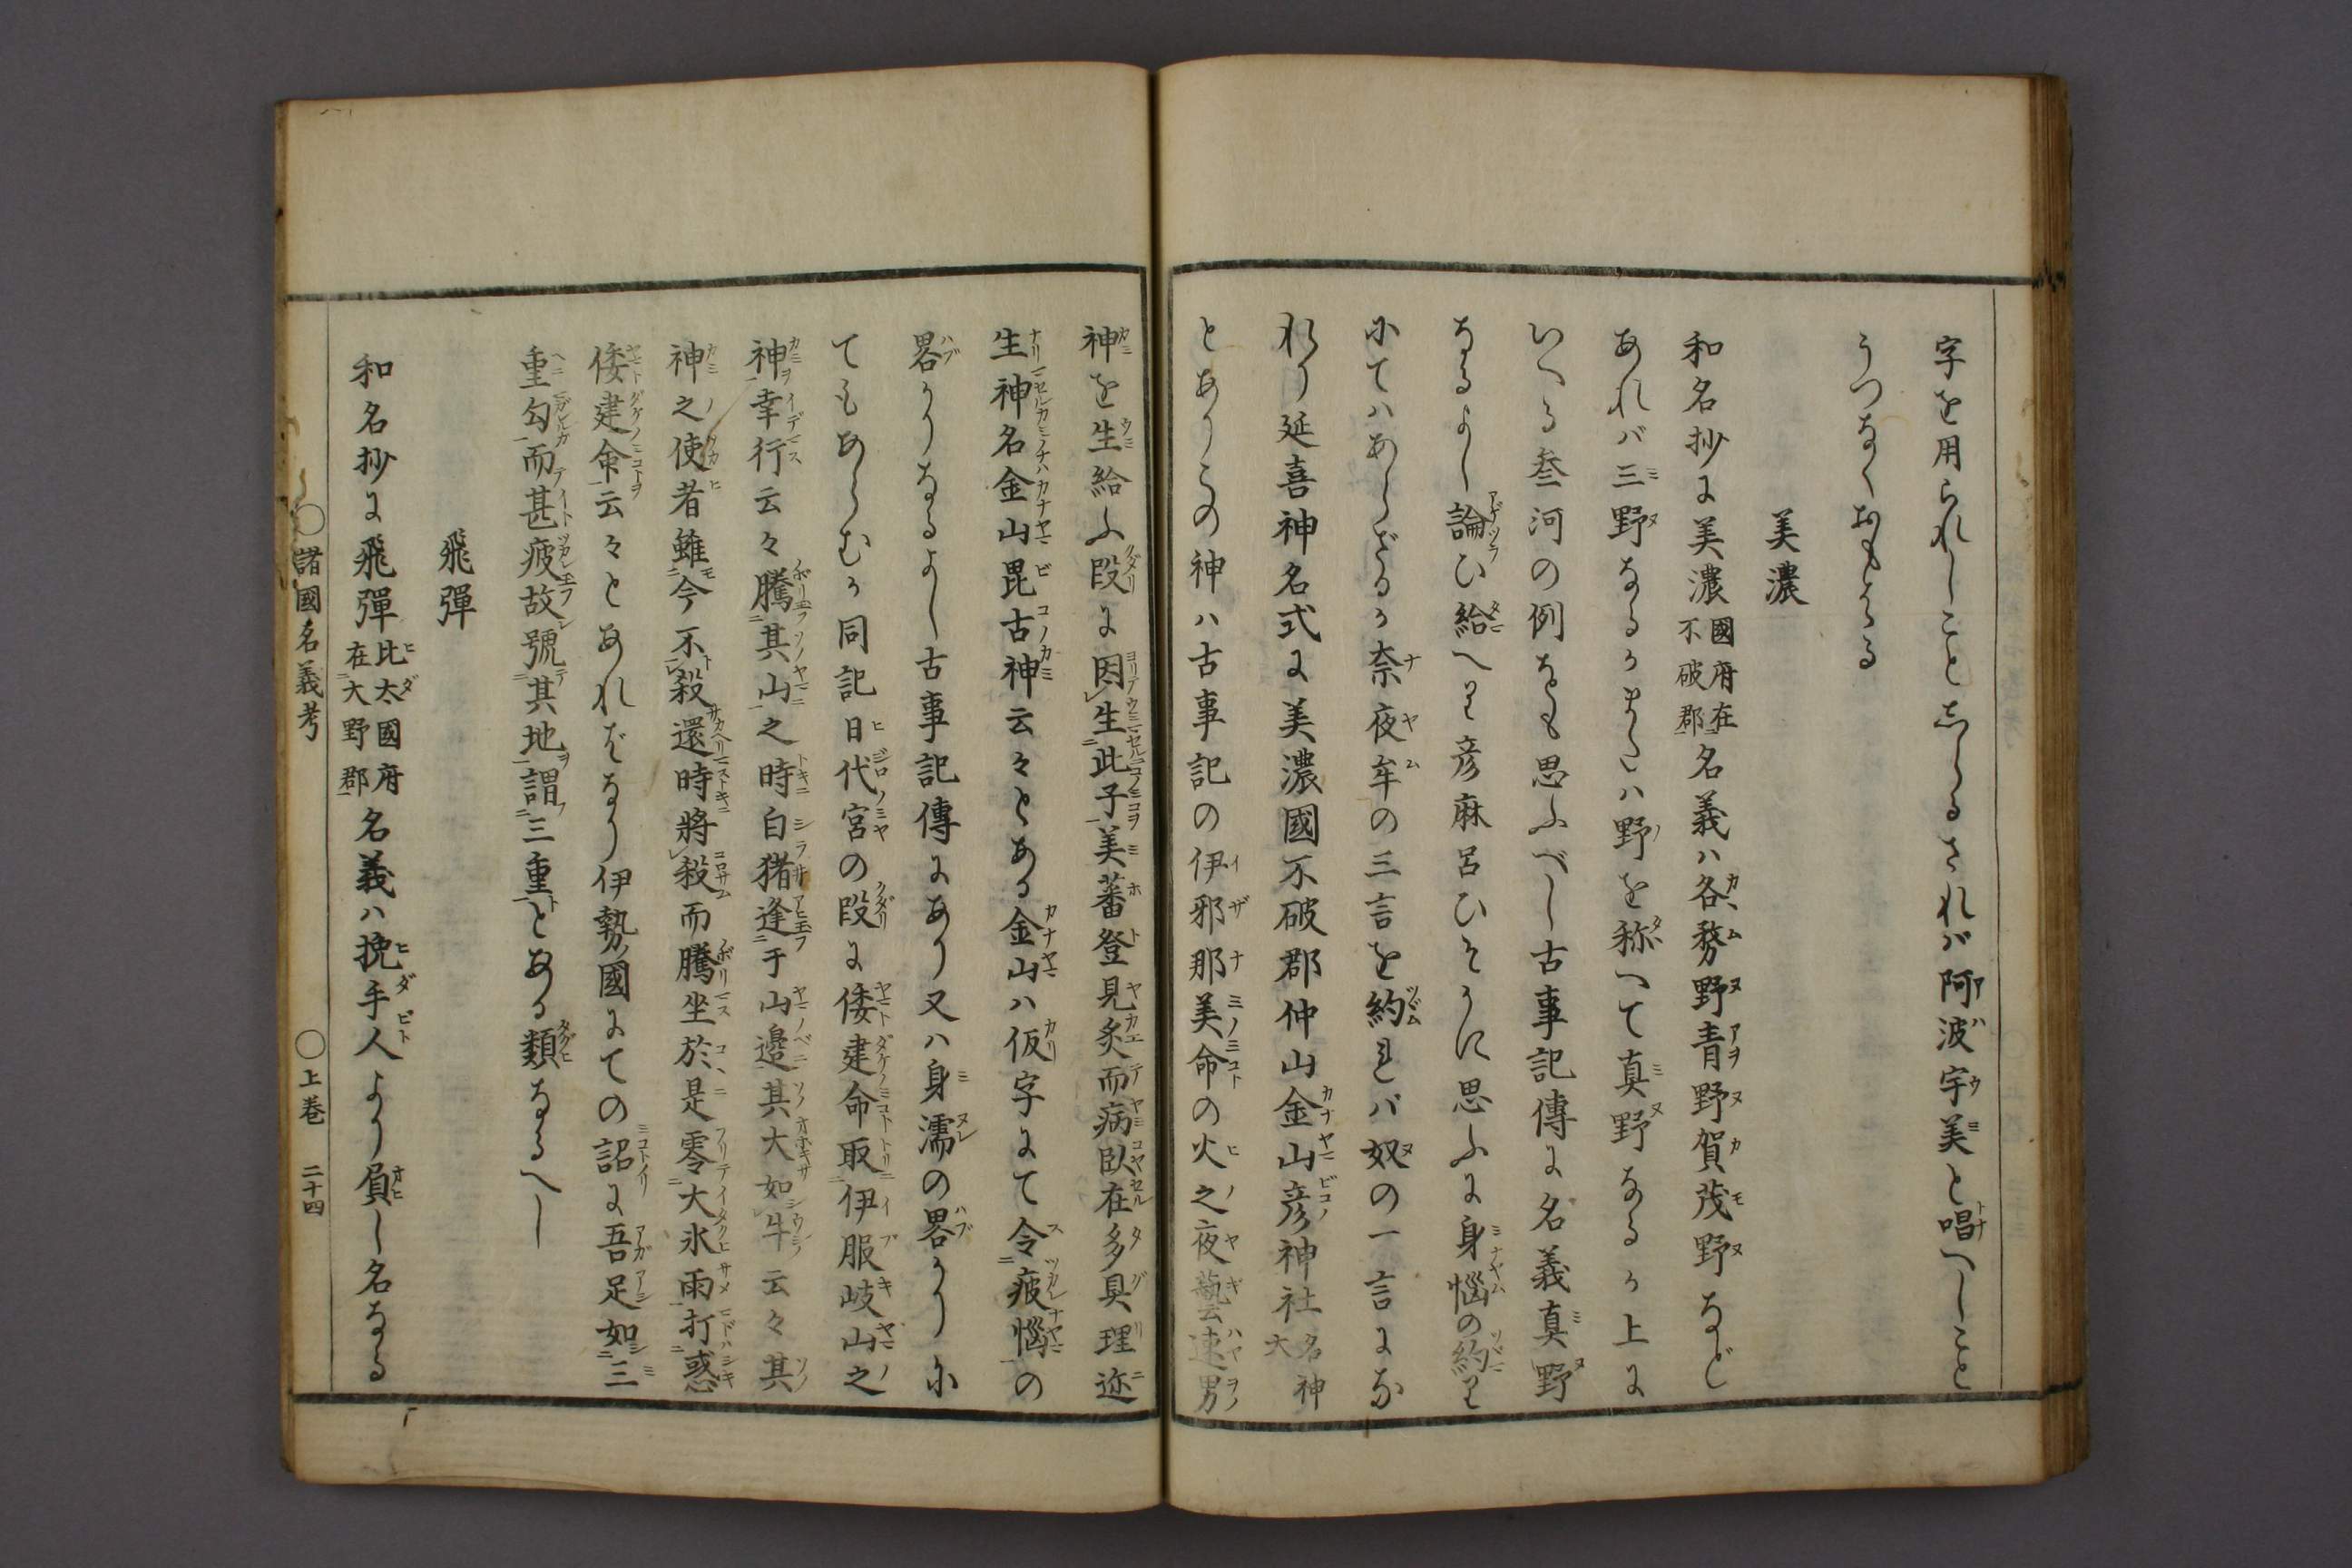 字を用られしこと志らるされバ阿波宇美と唱へしこと
うつなくおもほゆる
美濃
和名抄に美濃國府在不破郡名義ハ各務野青野賀茂野など
あれバ三野なるかまたハ野を称へて真野なるか上に
いへる叄河の例をも思ふべし古事記傳に名義真野
なるよし論ひ給へれと彦麻呂ひそかに思ふに身惱の約り
にてハあらざるか奈夜牟の三言を約むれバ奴の一言にな
れり延喜神名式に美濃國不破郡仲山金山彦神社名神大
とありこの神ハ古事記の伊邪那美命の火之夜藝速男
神を生給ふ段に因生此子美蕃登見炙而病臥在多具理迩
生神名金山毘古神云々とある金山ハ仮字にて令疲惱の
畧かりなるよし古事記傳にあり又ハ身濡の畧かりに
てもあらむか同記日代宮の段に倭建命取伊服岐山之
神幸行云々騰其山之時白猪逢于山邊其大如牛云々其
神之使者雖今不殺還時將殺而騰坐於是零大氷雨打惑
倭建命云々とあれバなり伊勢國にての詔に吾足如三
重勾而甚疲故號其地謂三重とある類なるへし
飛彈
和名抄に飛彈比太國府在大野郡名義ハ挽手人より負し名なる
○諸國名義考 ○上巻 二十四